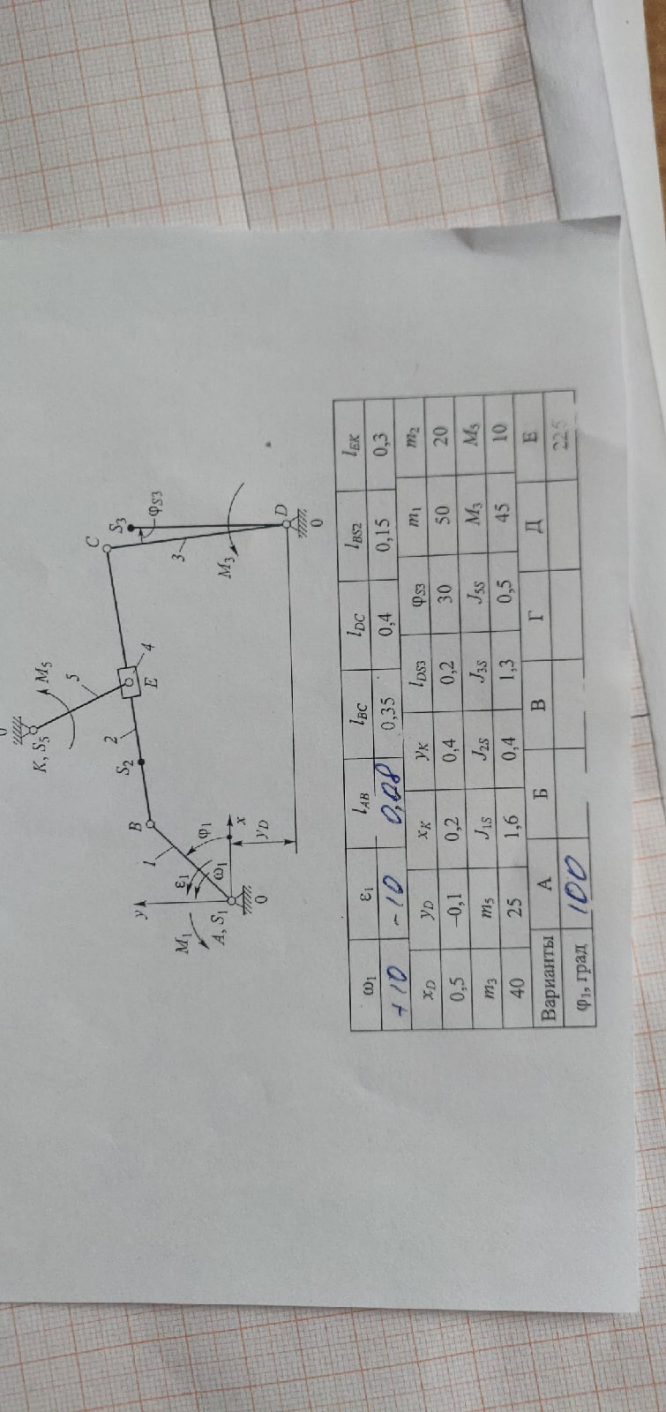 K, S₅
M₅
5
4
E
C
S₃
φS3
3
M₃
D
0
2
S₂
B
1
φ₁
ε₁
ω₁
x
yD
y
M₁
A, S₁
0
ω₁ ε₁ lAB lBC lDC lBS2 lEK
+10 -10 0,08 0,35 0,4 0,15 0,3
xD yD xK yK lDS3 φS3 m₁ m₂
0,5 –0,1 0,2 0,4 0,2 30 50 20
m₃ m₅ J1S J2S J3S J5S M₃ M₅
40 25 1,6 0,4 1,3 0,5 45 10
Варианты А Б В Г Д Е
φ₁, град 100 225